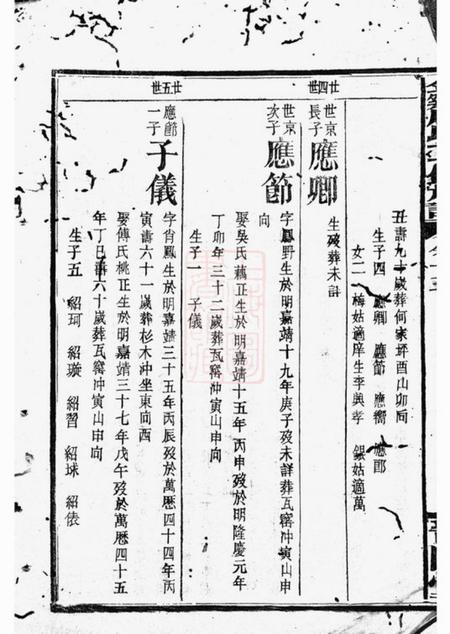 丑壽九十歲葬何家坪酉山卯向
生子四 應卿 應節 應嚮 應郎
女二 梅姑適庠生李奐孝 銀姑適萬
廿四世
世京長子 應卿 生歿葬未詳
世京次子 應節 字鳳野生於明嘉靖十九年庚子歿未詳葬瓦窰冲寅山申
向
娶吳氏藕正生於明嘉靖十五年丙申歿於明隆慶元年
丁卯年三十二歲葬瓦窰冲寅山申向
生子一 子儀
廿五世
應節一子 子儀 字肖鳳生於明嘉靖三十五年丙辰歿於萬曆四十四年丙
寅壽六十一歲葬杉木沖坐東向西
娶傅氏桃正生於明嘉靖三十七年戊午歿於萬曆四十五
年丁巳壽六十歲葬瓦窰冲寅山申向
生子五 紹珂 紹璇 紹習 紹球 紹俵